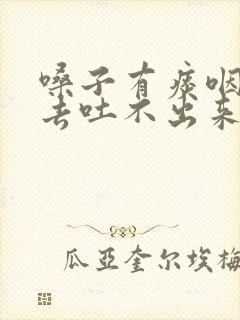 嗓子有痰咽
去吐不出来
瓜亚奎尔埃梅